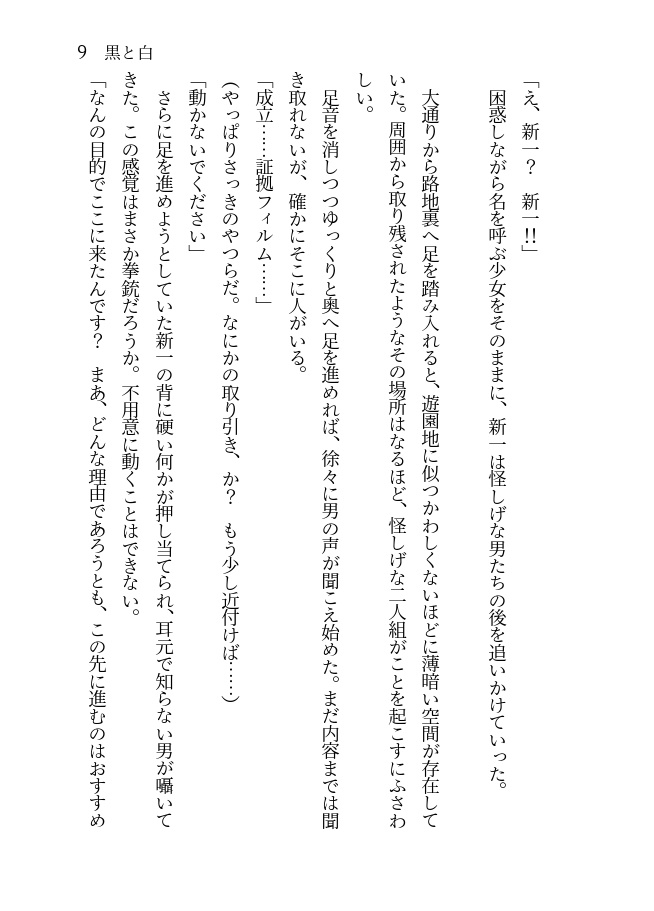 9　黒と白
「え、新一？　新一!!」
　困惑しながら名を呼ぶ少女をそのままに、新一は怪しげな男たちの後を追いかけていった。
　大通りから路地裏へ足を踏み入れると、遊園地に似つかわしくないほどに薄暗い空間が存在して
いた。周囲から取り残されたようなその場所はなるほど、怪しげな二人組がことを起こすにふさわ
しい。
　足音を消しつつゆっくりと奥へ足を進めれば、徐々に男の声が聞こえ始めた。まだ内容までは聞
き取れないが、確かにそこに人がいる。
「成立……証拠フィルム……」
（やっぱりさっきのやつらだ。なにかの取り引き、か？　もう少し近付けば……）
「動かないでください」
　さらに足を進めようとしていた新一の背に硬い何かが押し当てられ、耳元で知らない男が囁いて
きた。この感覚はまさか拳銃だろうか。不用意に動くことはできない。
「なんの目的でここに来たんです？　まあ、どんな理由であろうとも、この先に進むのはおすすめ